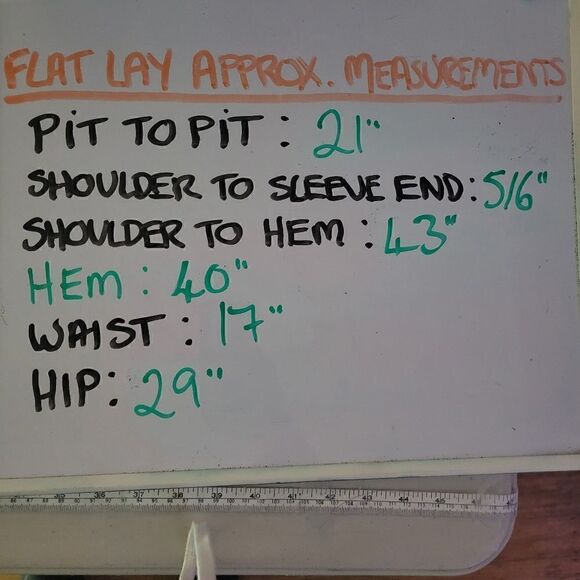 FLAT LAY APPROX. MEASUREMENTS
PiT TO PiT : 21"
SHOULDER TO SLEEVE END: 5/6"
SHOULDER TO HEM : 43"
HEM : 40"
WAIST : 17"
HIP: 29"